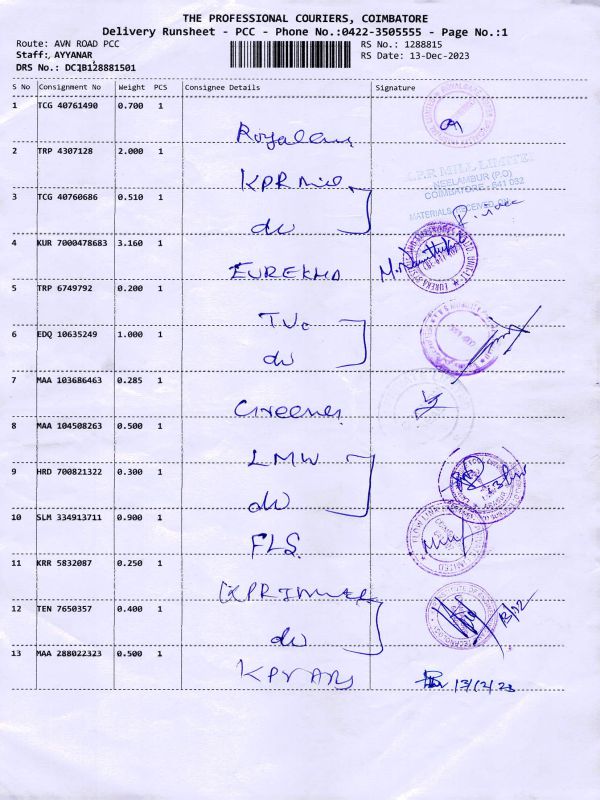 THE PROFESSIONAL COURIERS, COIMBATORE
Delivery Runsheet - PCC - Phone No.:0422-3505555 - Page No.:1
Route: AVN ROAD PCC RS No.: 1288815
Staff: AYYANAR RS Date: 13-Dec-2023
DRS No.: DC1B128881501
S No Consignment No Weight PCS Consignee Details Signature
1 TCG 40761490 0.700 1
Royalcare
2 TRP 4307128 2.000 1
KPR Mill
K.P.R MILL LIMITED
NEELAMBUR (P.O)
COIMBATORE - 641 062
3 TCG 40760686 0.510 1
MATERIALS RECEIVED ON
do
4 KUR 7000478683 3.160 1
EUREKHA
5 TRP 6749792 0.200 1
do
6 EDQ 10635249 1.000 1
7 MAA 103686463 0.285 1
Greenes
8 MAA 104508263 0.500 1
LMW
9 HRD 700821322 0.300 1
do
10 SLM 334913711 0.900 1
FLS
11 KRR 5832087 0.250 1
12 TEN 7650357 0.400 1
do
13 MAA 288022323 0.500 1
13/12/23